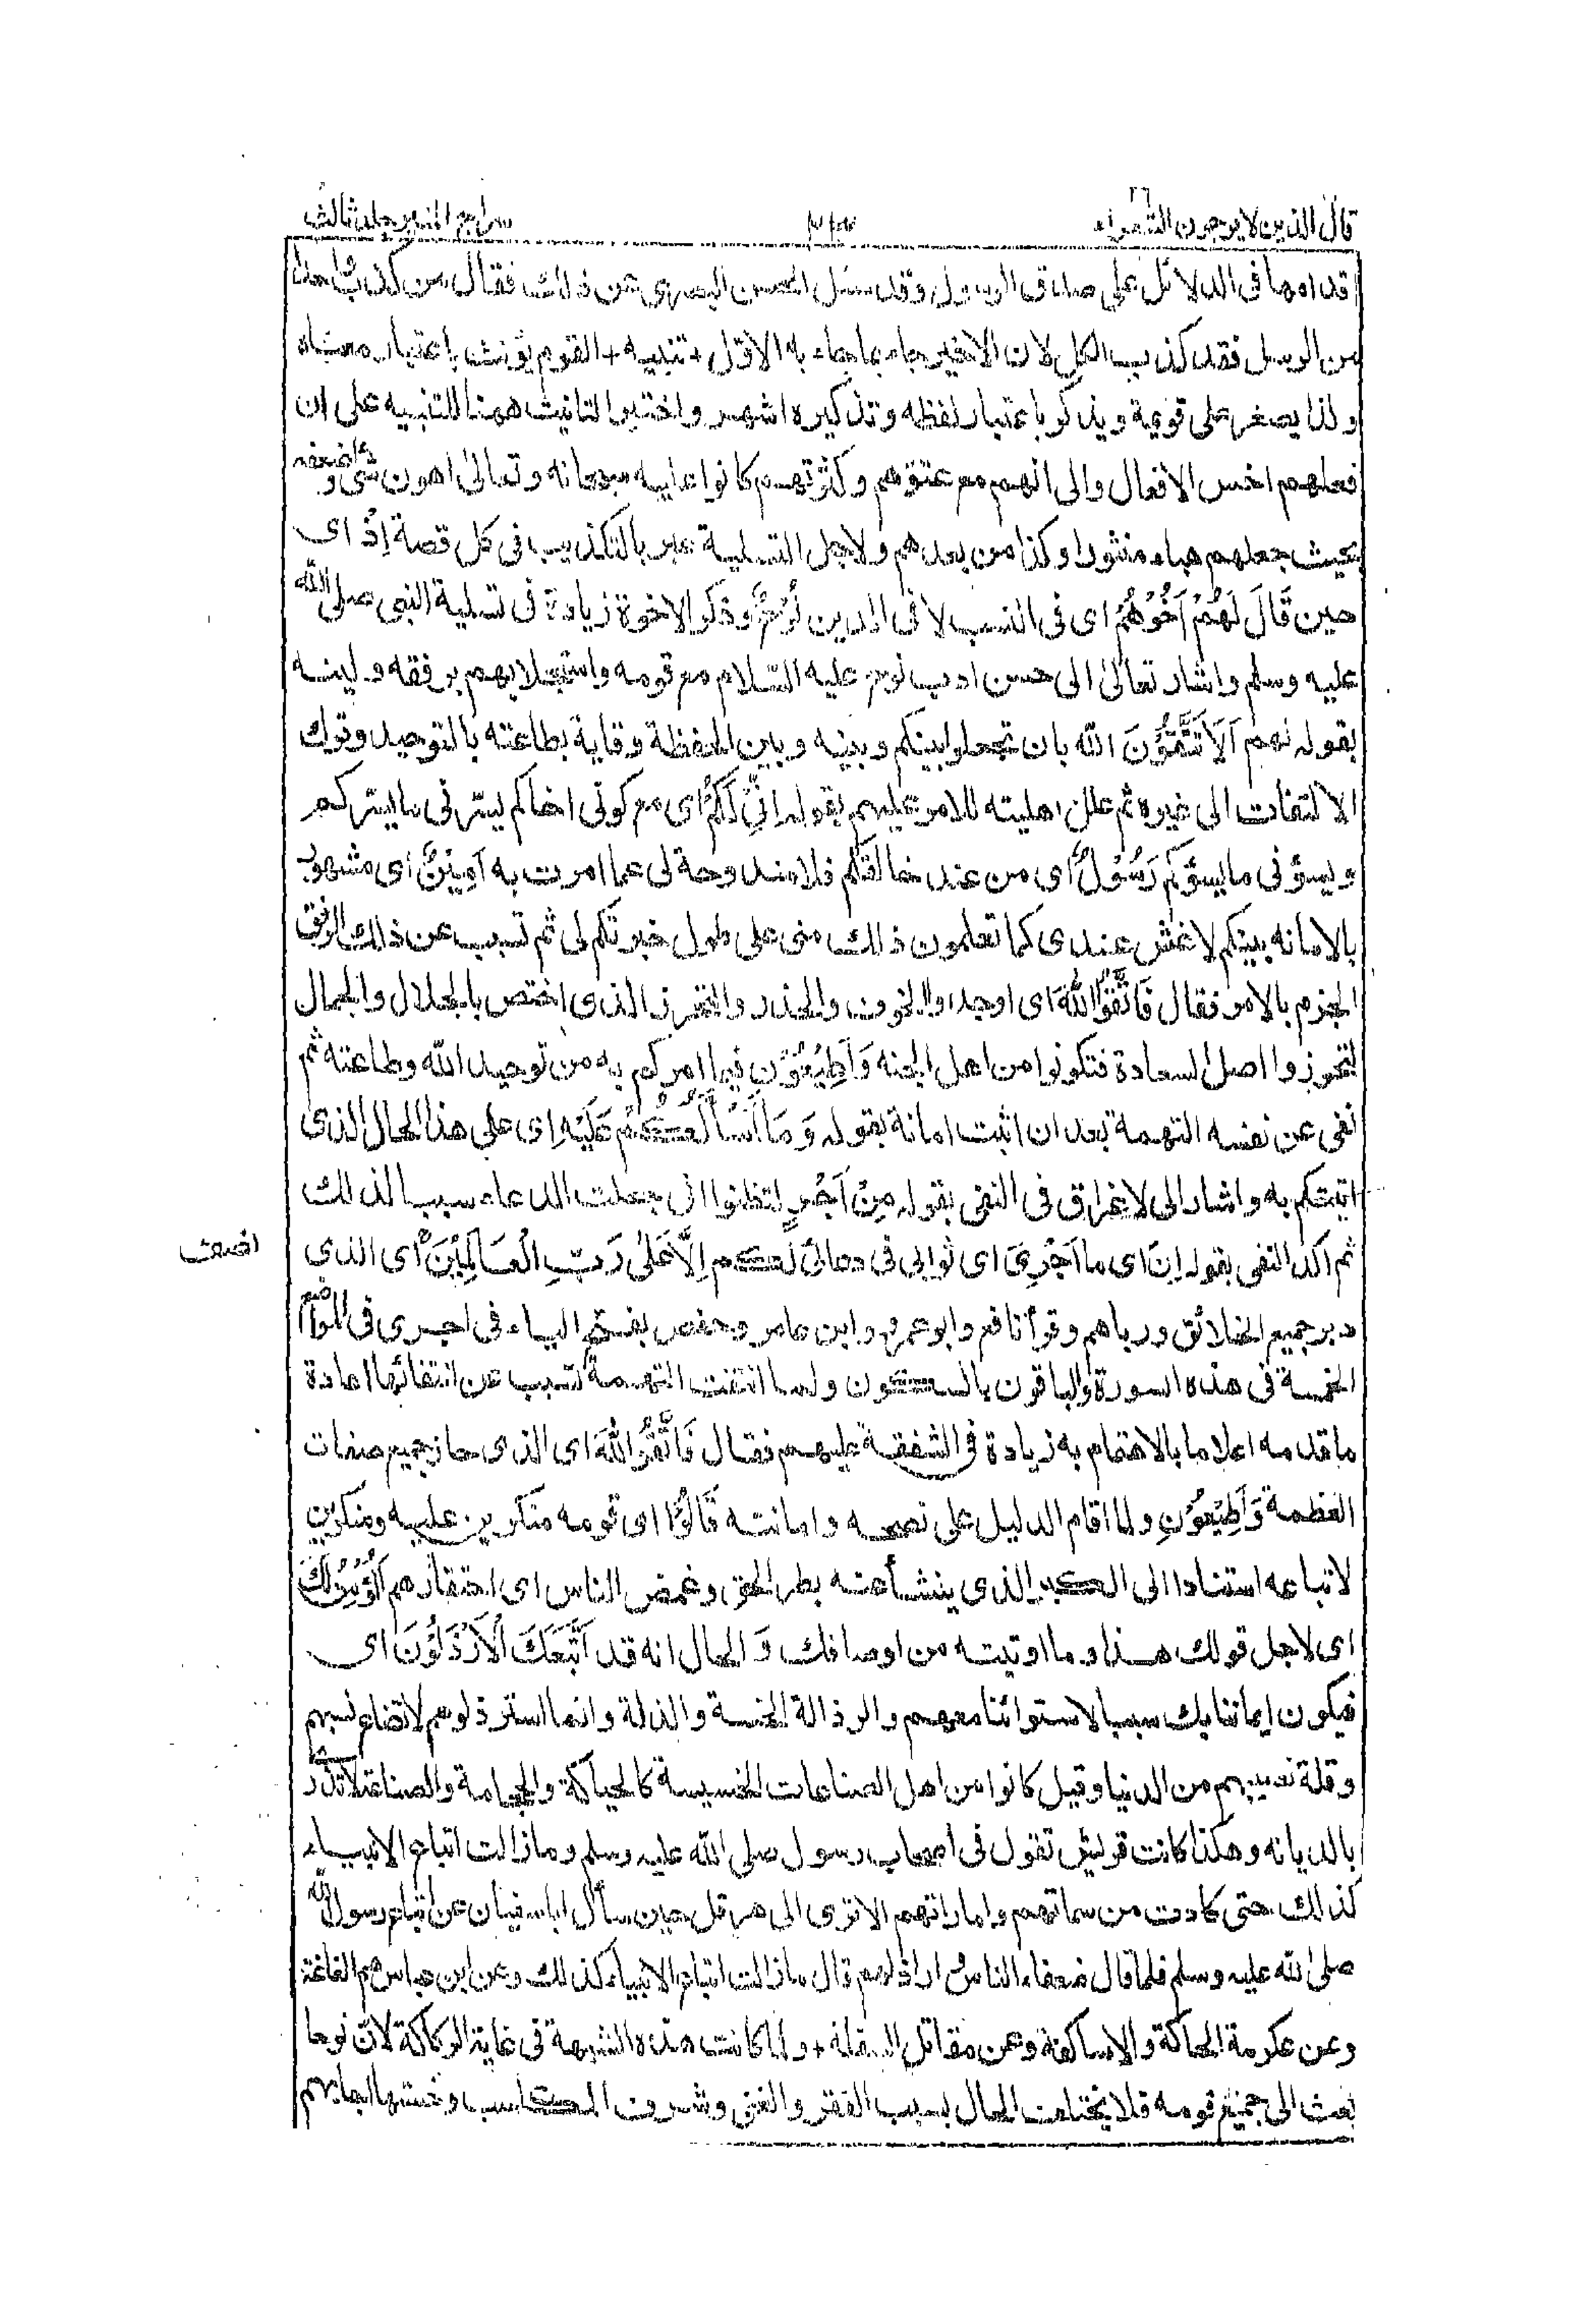 قال الذين لا يرجون الشعراء ٢٦
سراج المنير جلد ثالث
قدامها فى الدلائل على صدق الرسول وقد سئل الحسن البصرى عن ذلك فقال من كذب واحدا
من الرسل فقد كذب الكل لان الاخير جاء بما جاء به الاوّل + تنبيه + القوم يؤنث باعتبار معناه
ولذا يصغر على قويمة ويذكر باعتبار لفظه وتذكيره اشهر واختير التانيث ههنا للتنبيه على ان
فعلهم اخس الافعال والى انهم مع عتوّهم وكثرتهم كانوا عليه سبحانه وتعالىٰ اهون شئ واضعفه
بحيث جعلهم هباء منثورا وكذا من بعدهم ولاجل التسلية عبر بالتكذيب فى كل قصة اِذْ اى
حين قَالَ لَهُمْ اَخُوْهُمْ اى فى النسب لا فى الدين نُوْحٌ وذكر الاخوة زيادة فى تسلية النبى صلى الله
عليه وسلم واشار تعالىٰ الى حسن ادب نوح عليه السّلام مع قومه واستجلابهم برفقه ولينه
بقوله لهم اَلَا تَتَّقُوْنَ الله بان تجعلوا بينكم وبينه وبين سخطه وقاية بطاعته بالتوحيد وترك
الالتفات الى غيره ثم علل اهليته للامر عليهم بقوله اِنِّىْ لَكُمْ اى مع كونى اخاكم يسرّنى ما يسركم
ويسؤنى ما يسؤكم رَسُوْلٌ اى من عند خالقكم فلا مندوحة لى عما امرت به اَمِيْنٌ اى مشهور
بالامانه بينكم لا غش عندى كما تعلمون ذلك منى على طول خبرتكم لى ثم تسبب عن ذلك الرفق
الجزم بالامر فقال فَاتَّقُوا اللّٰهَ اى اوجدوا الخوف والحذر والتحرز الذى اختص بالجلال والجمال
لتحوزوا اصل السعادة فتكونوا من اهل الجنه وَاَطِيْعُوْنِ فيما امركم به من توحيد الله وطاعته ثم
نفى عن نفسه التهمة بعد ان اثبت امانة بقوله وَمَا اَسْاَلُكُمْ عَلَيْهِ اى على هذا الحال الذى
اتيتكم به واشار الى الاغراق فى النفى بقوله مِنْ اَجْرٍ لتظنوا انى جعلت الدعاء سببا لذلك
ثم اكد النفى بقوله اِنْ اى ما اَجْرِىَ اى ثوابى فى دعائى لكم اِلَّا عَلٰى رَبِّ الْعَالَمِيْنَ اى الذى
دبر جميع الخلائق ورباهم وقرأ نافع وابو عمرو وابن عامر وحفص بفتح الياء فى اجرى فى المواضع
الخمسة فى هذه السورة والباقون بالسكون ولما انتفت التهمة تسبب عن انتفائها اعادة
ما قدمه اعلاما بالاهتمام به زيادة فى الشفقة عليهم فقال فَاتَّقُوا اللّٰهَ اى الذى حاز جميع صفات
العظمة وَاَطِيْعُوْنِ ولما اقام الدليل على نصحه وامانته قَالُوْا اى قومه منكرين عليه ومنكرين
لاتباعه استنادا الى الكبر الذى ينشأ عنه بطر الحق وغمض الناس اى احتقارهم اَنُؤْمِنُ لَكَ
اى لاجل قولك هذا وما اوتيته من اوصافك وَ الحال انه قد اتَّبَعَكَ الْاَرْذَلُوْنَ اى
فيكون ايماننا بك سببا لاستوائنا معهم والرذالة الخسة والذلة وانما استرذلوهم لاتضاع نسبهم
وقلة نصيبهم من الدنيا وقيل كانوا من اهل الصناعات الخسيسة كالحياكة والحجامة والصناعة لا تزرى
بالديانه وهكذا كانت قريش تقول فى اصحاب رسول صلى الله عليه وسلم وما زالت اتباع الانبياء
كذلك حتى كادت من سماتهم واماراتهم الا ترى الى هرقل حين سأل ابا سفيان عن اتباع رسول الله
صلى الله عليه وسلم فلما قال ضعفاء الناس و اراذلهم قال ما زالت اتباع الانبياء كذلك وعن ابن عباس هم الغاغة
وعن عكرمة الحاكة والاساكفة وعن مقاتل السفلة + ولما كانت هذه الشبهة فى غاية الركاكة لان نوحا
بعث الى جميع قومه فلا يختلف الحال بسبب الفقر والغنى وشرف المكاسب وخستها اجابهم